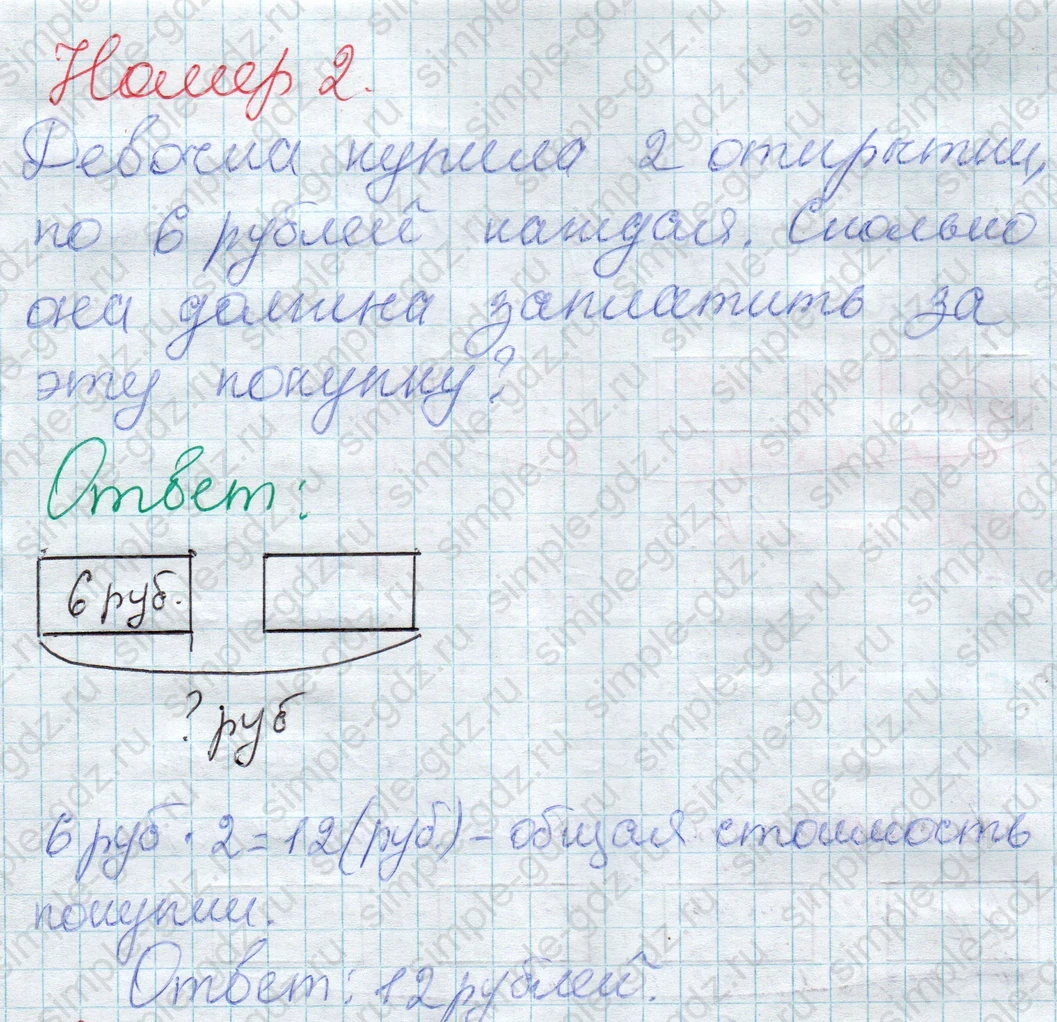 Номер 2.
Девочка купила 2 открытки,
по 6 рублей каждая. Сколько
она должна заплатить за
эту покупку?
Ответ:
6 руб.
? руб
6 руб · 2 = 12 (руб.) – общая стоимость
покупки.
Ответ: 12 рублей.
simple-gdz.ru